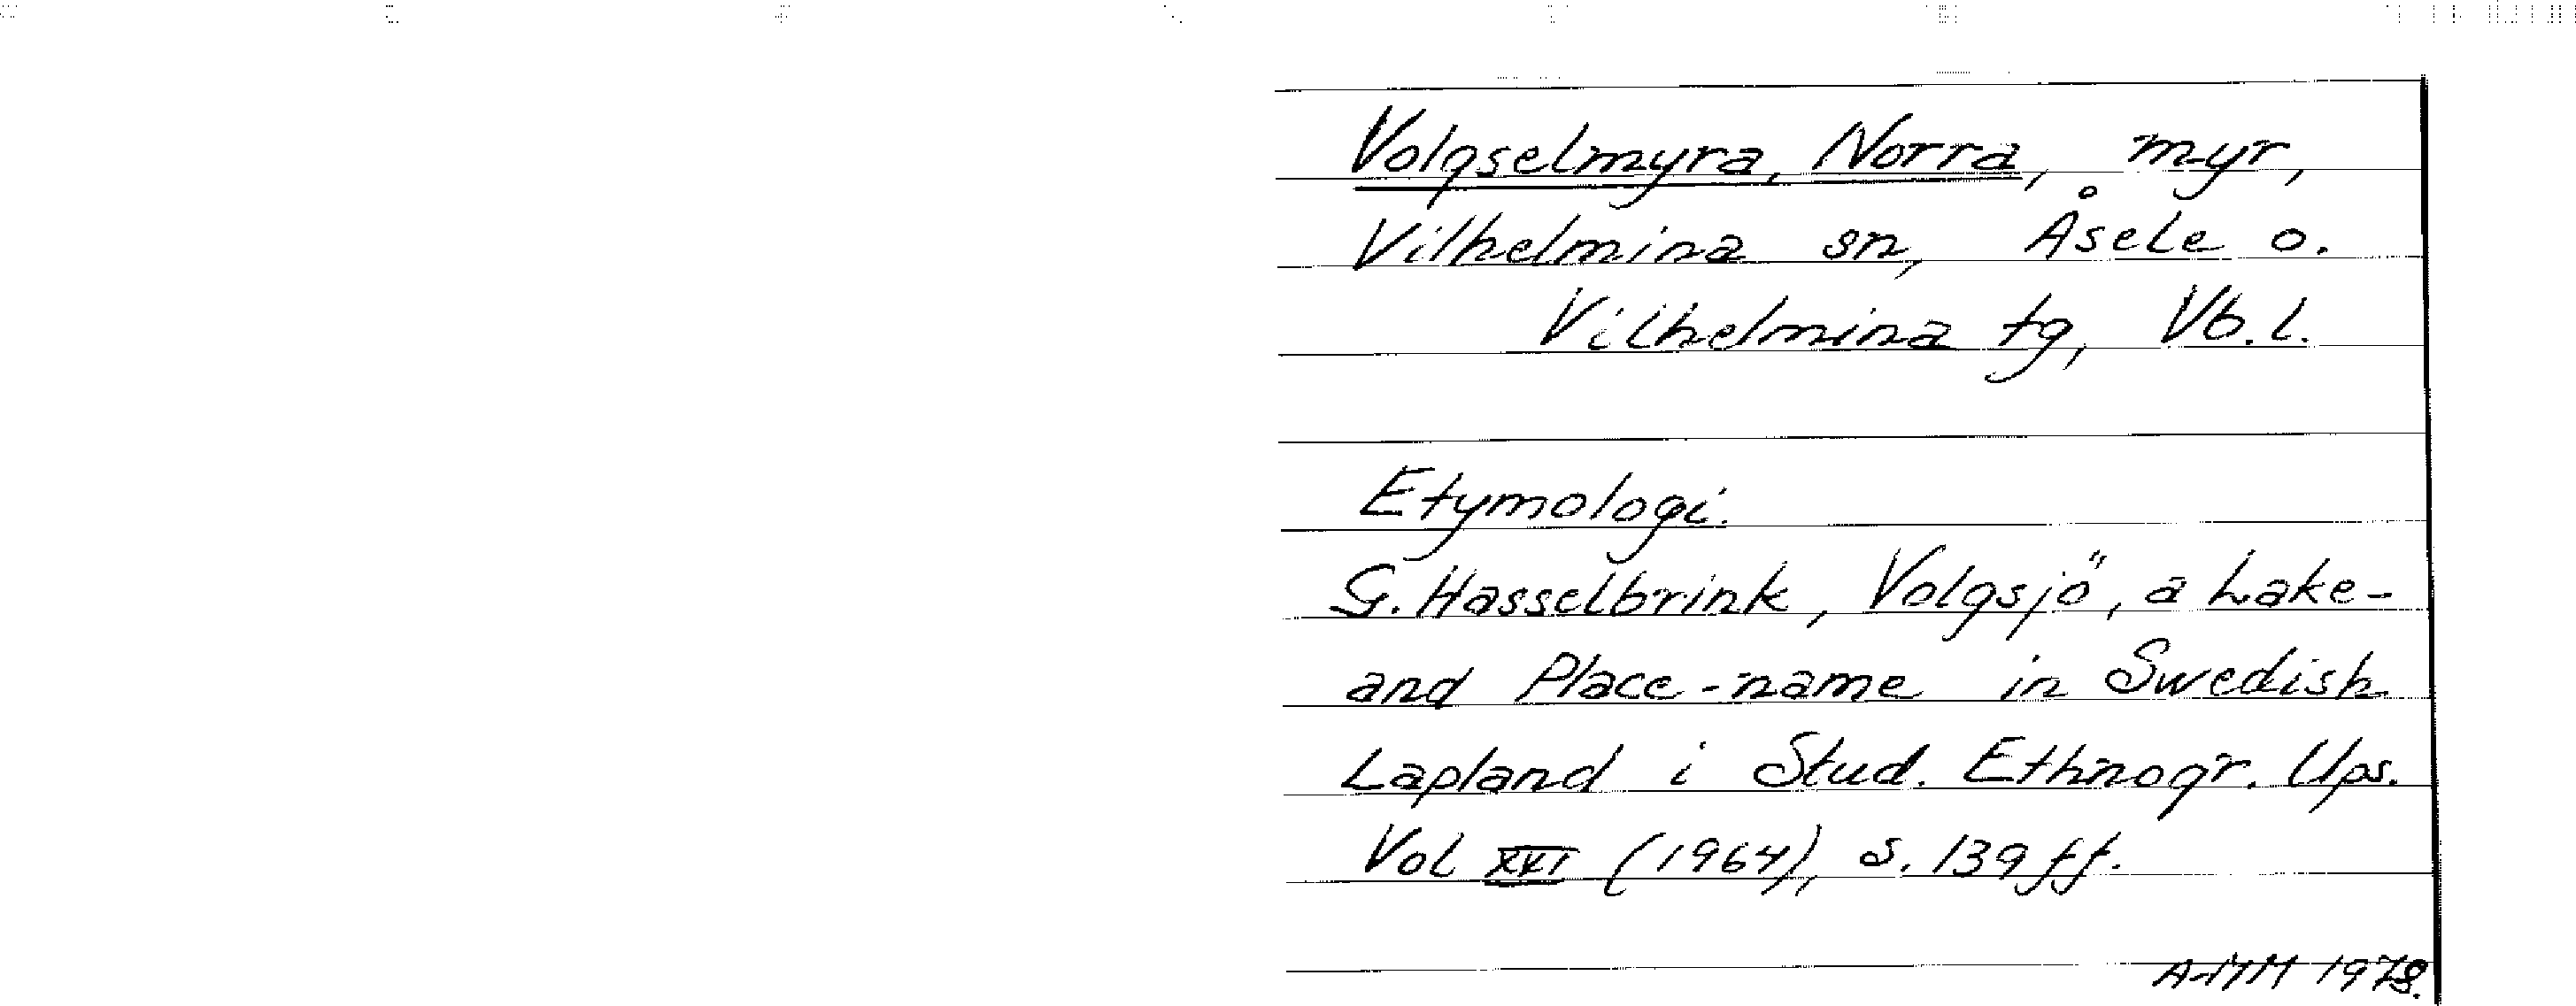 Volgselmyra, Norra, myr,
Vilhelmina sn, Åsele o.
Vilhelmina tg, Vb.l.
Etymologi.
G. Hasselbrink, Volgsjö, a Lake-
and Place-name in Swedish
Lapland i Stud. Ethnogr. Ups.
Vol XXI (1964), s. 139 ff.
A-MM 1978.